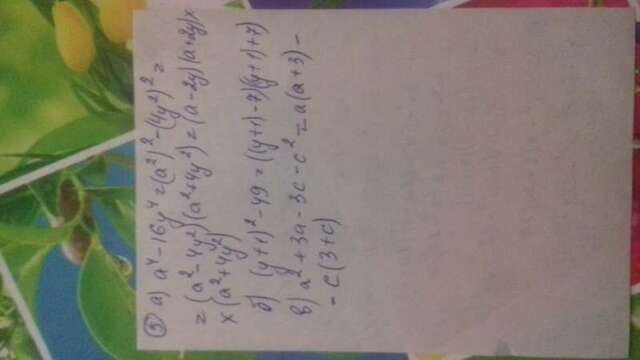 ⑤ а) a⁴-16y⁴=(a²)²-(4y²)²=
=(a²-4y²)(a²+4y²)=(a-2y)(a+2y)x
x(a²+4y²)
б) (y+1)²-49=((y+1)-7)((y+1)+7)
в) a²+3a-3c-c²=a(a+3)-
-c(3+c)